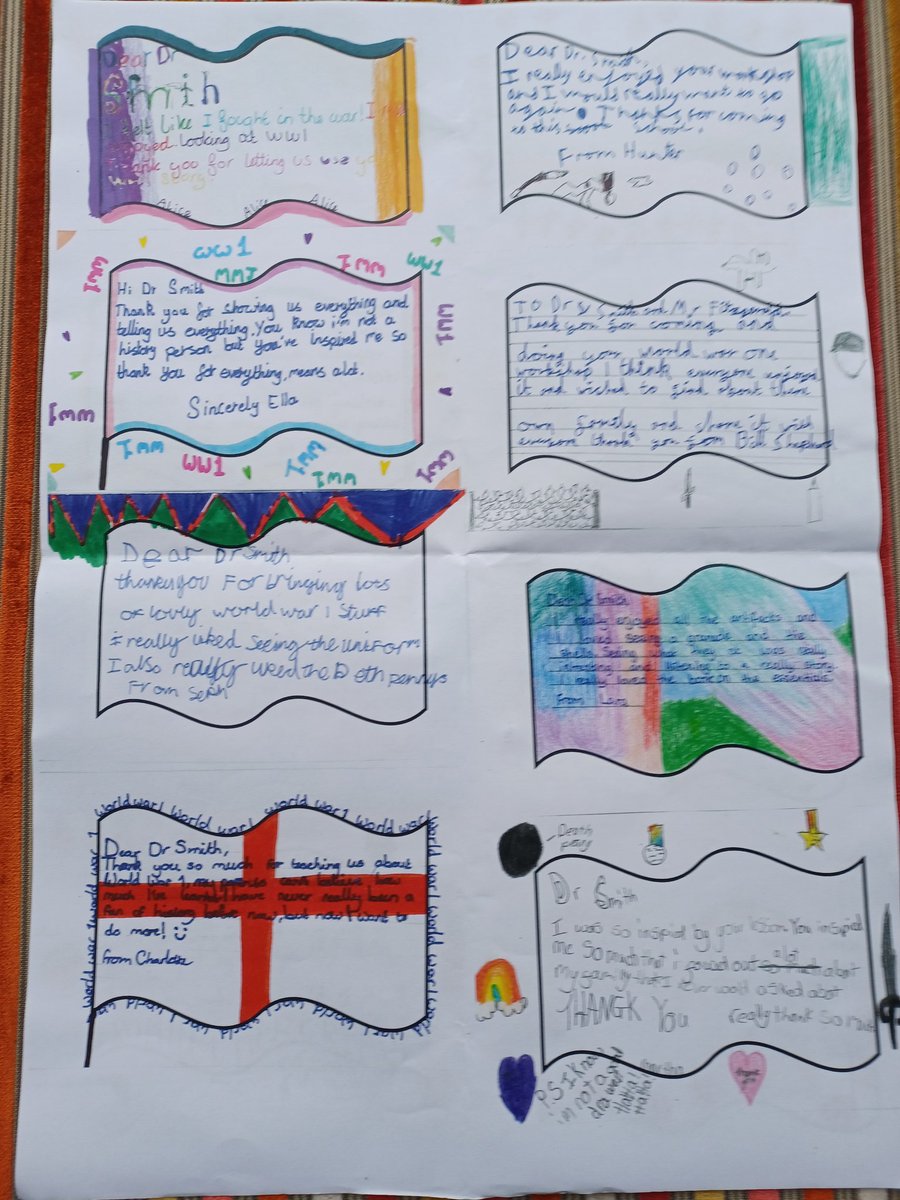 Dear Dr
Smith
I felt like I fought in the war! I
enjoyed looking at WW1
Thank you for letting us use
Alice Alice Alice
Dear Dr. Smith,
I really enjoyed your workshop
and I would really want to go
again. Thanks for coming
to this School.
From Hunter
WW1
WW1
WW1
WW1
WW1
Hi Dr Smith
Thank you for showing us everything and
telling us everything. You know i'm not a
history person but you've inspired me so
thank you for everything, means alot.
Sincerely Ella
WW1
WW1
WW1
WW1
WW1
WW1
WW1
To Dr Smith and Mr Fitzgerald
Thank you for coming and
doing your world war one
workshop I think everyone enjoyed
it and wished to find about there
own family and share it with
everyone thank you from Bill
Dear Dr Smith
thankyou For bringing lots
of lovly world war 1 stuff
i really liked seeing the uniform
I also really liked the Deth pennys
From
Dear Dr Smith
I really enjoyed all the artifacts and
I loved seeing a grenade and the
shells. Seeing what they it was really
intresting and listening to a really story.
I really loved the book on the essentials.
From Lara
World war 1 World war 1 World war 1 World war
World war 1 World war 1 World war
World war 1 World war 1 World
Dear Dr Smith,
Thank you so much for teaching us about
World War 1 can't believe how
much I've learnt! I have never really been a
fan of history before now, but now I want to
do more!
from Charlotte
World war 1 World war 1 World
Death
peny
Dr Smith
I was so inspied by your lesson You inspied
me so much that i fouwd out so much alot about
my gamily that I never would asked abot
THANGK You really thank so much
P.S I know
i'm not a good
drawer
Haha!
Haha!